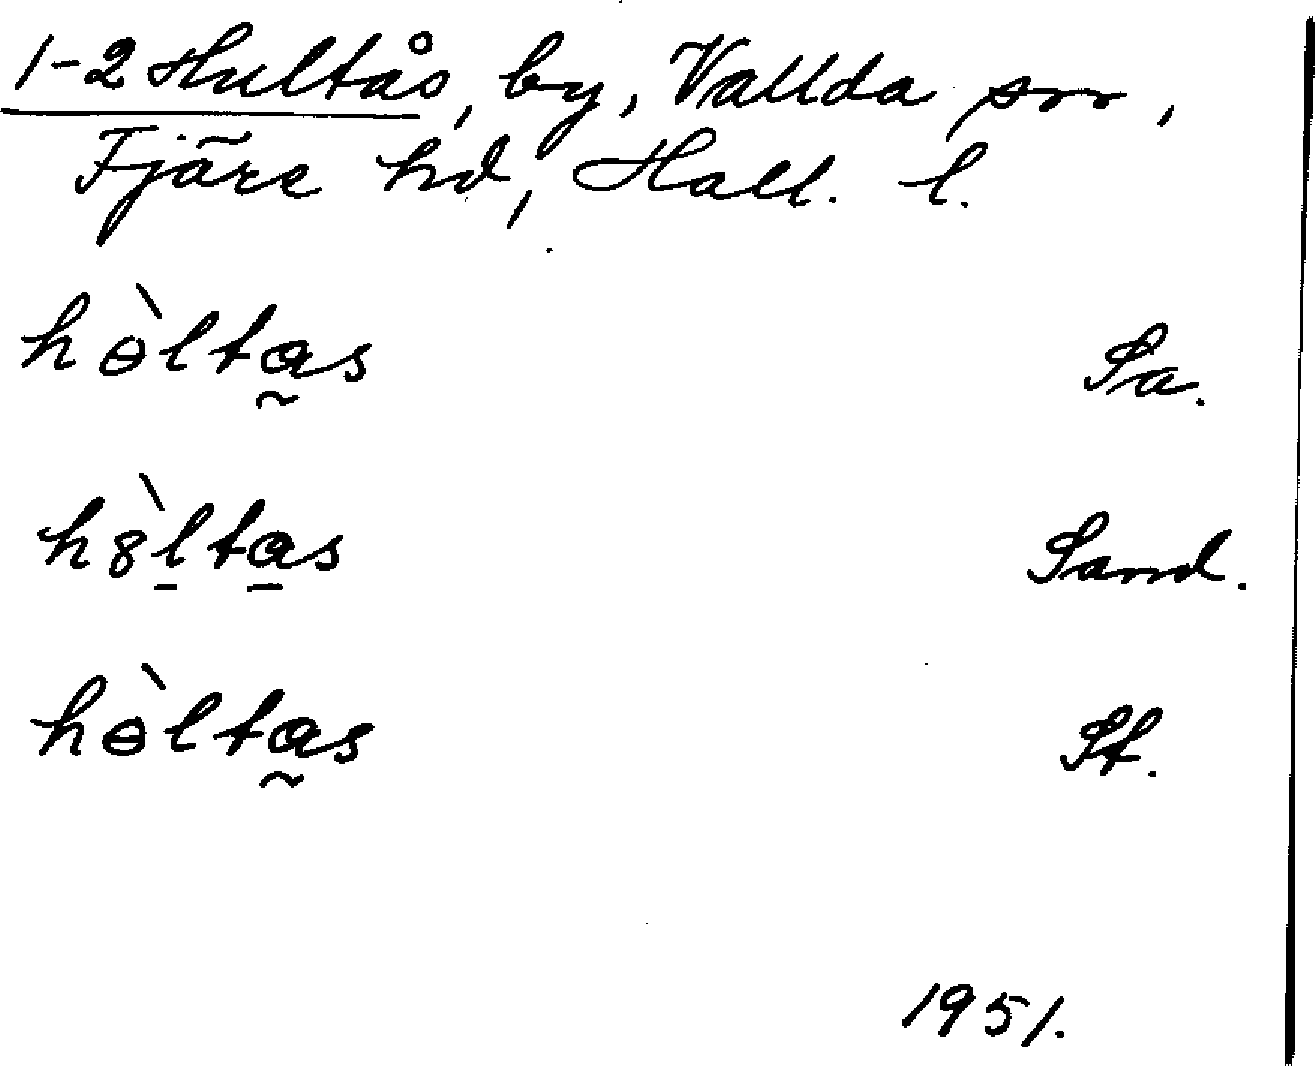 1-2 Hultås, by, Vallda sn,
Fjäre hd, Hall. l.
hɵ̀lta̰s Sa.
h8̀l̠ta̠s Sand.
hɵ̀lta̰s St.
1951.